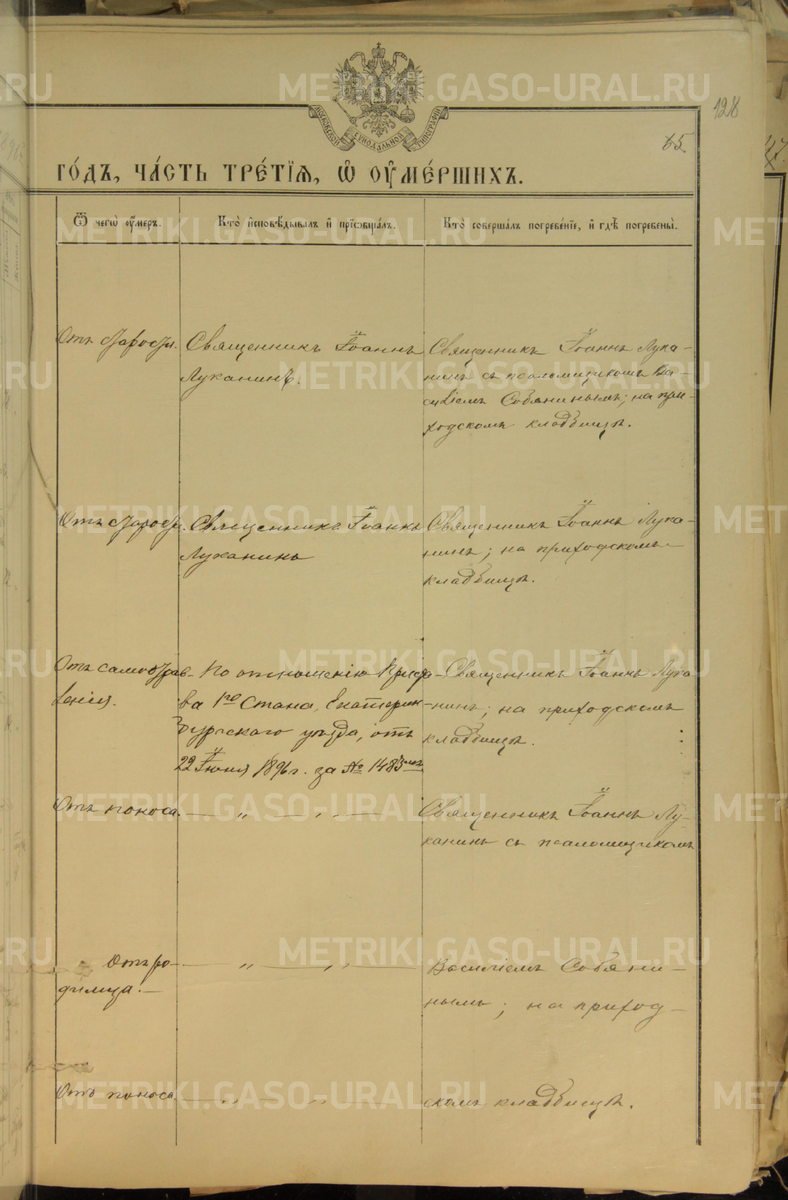 METRIKI.GASO-URAL.RU
МОСКОВСКОЙ СѴНОДАЛЬНОЙ ТИПОГРАФІИ
128
65.
ГО́ДЪ, ЧА́СТЬ ТРЕ́ТІЯ, Ѿ ОУ҆МЕ́РШИХЪ.
Ѿ чегѡ̀ оу҆́меръ.
Кто̀ и҆сповѣ́дывалъ и҆ прїѡбща́лъ.
Кто̀ соверша́лъ погребе́нїе, и҆ гдѣ̀ погребены̀.
Отъ старости.
Священникъ Іоаннъ
Луканинъ.
Священникъ Іоаннъ Лука-
нинъ съ псаломщикомъ Ва-
силіемъ Собянинымъ; на при-
ходскомъ кладбищѣ.
Отъ старости.
Священникъ Іоаннъ
Луканинъ
Священникъ Іоаннъ Лука-
нинъ; на приходскомъ
кладбищѣ.
Отъ самоотрав-
ленія.
По отношенію Приста-
ва 1го Стана, Екатерин-
бургскаго уѣзда, отъ
22 Іюня 1896 г. за № 1483
Священникъ Іоаннъ Лука-
нинъ; на приходскомъ
кладбищѣ.
Отъ поноса. — „ — „ —
Священникъ Іоаннъ Лу-
канинъ съ псаломщикомъ
Отъ ро-
димца. — „ — „ —
Василіемъ Собяни-
нымъ; на приход-
Отъ поноса. — „ — „ —
скомъ кладбищѣ.